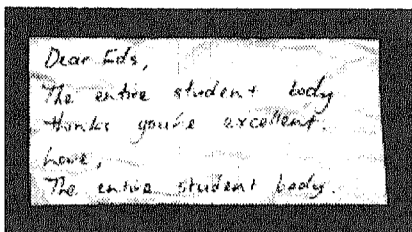 Dear Eds,
The entire student body
thinks you're excellent.
Love,
The entire student body.